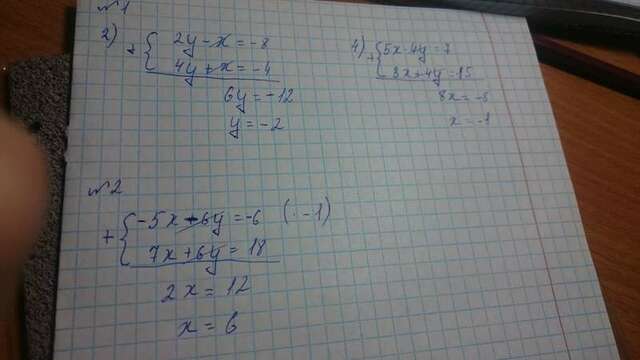 №1
2) + { 2y - x = -8
4y + x = -4
6y = -12
y = -2
4) + { 5x - 4y = 7
3x + 4y = 15
8x = -8
x = -1
№2
+ { -5x - 6y = -6 (· -1)
7x + 6y = 18
2x = 12
x = 6